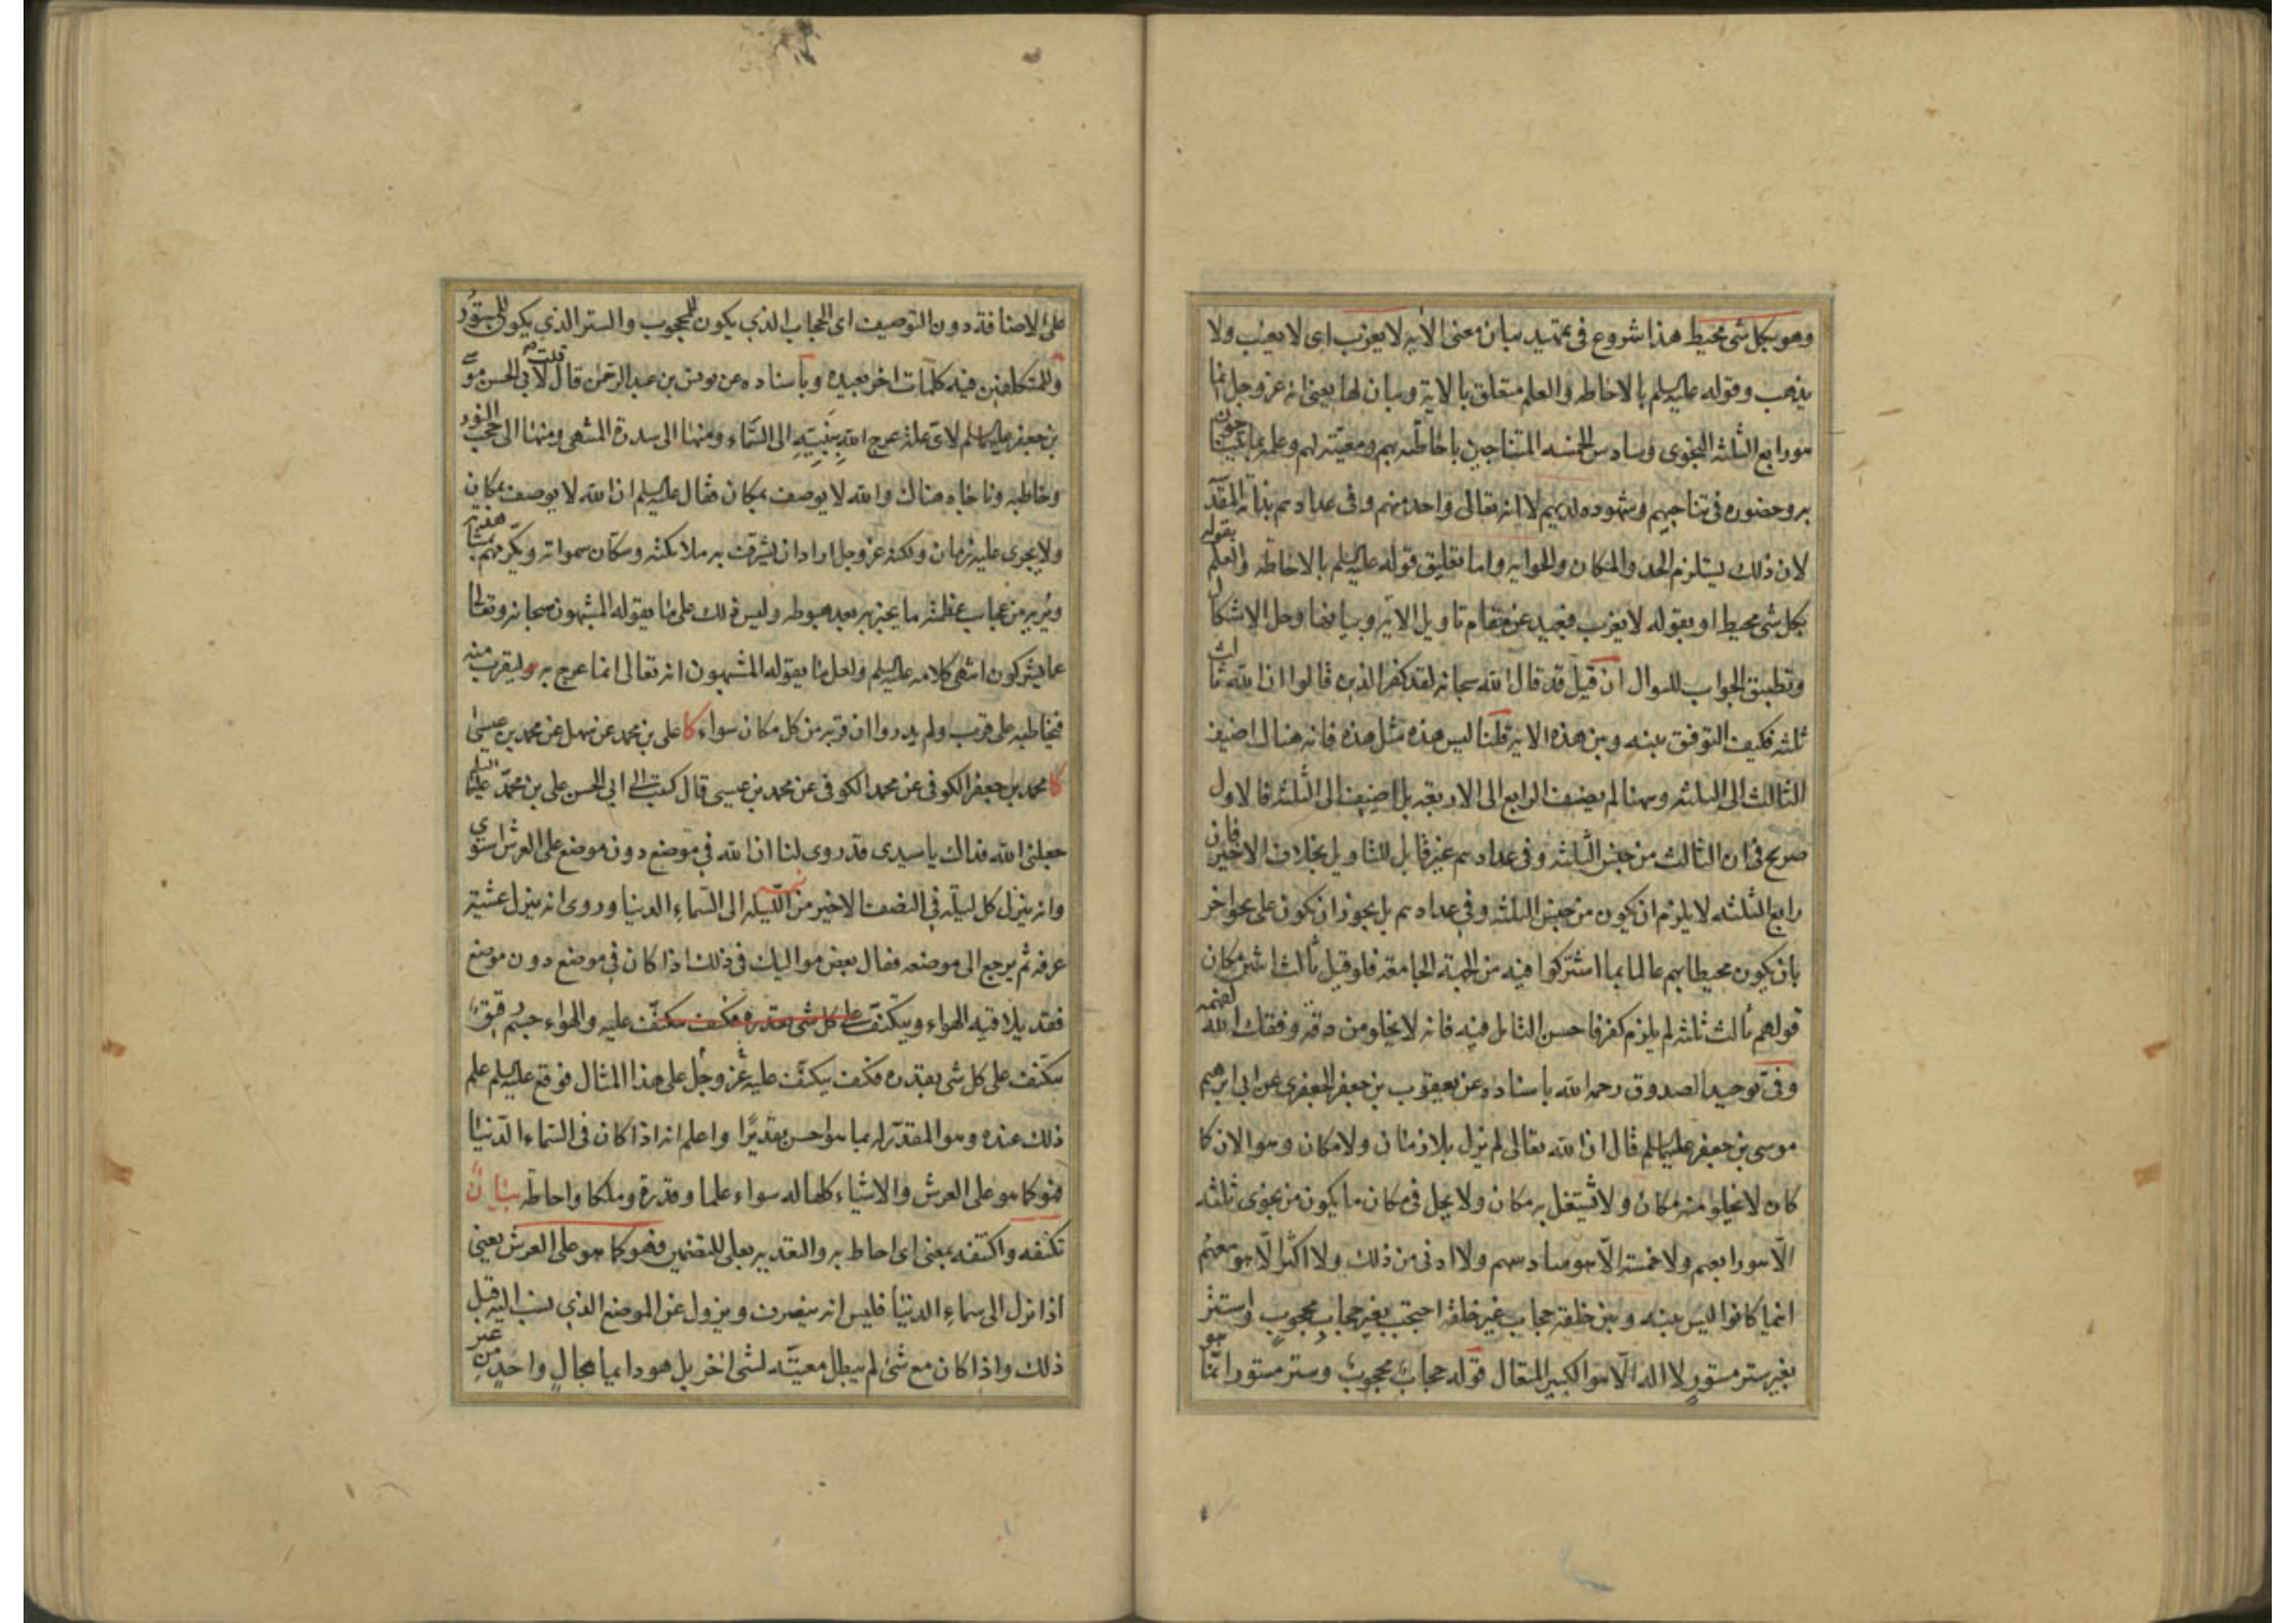 وهو بكل شئ محيط هذا شروع فى تمهيد بيان معنى الآية لا يعزب اى لا يغيب ولا
يذهب وقوله عليه السلم بالاحاطه والعلم متعلق بالاية وبيان لها يعنى انه عز وجل انما
هو رابع الثلثه النجوى وسادس الخمسه المتناجين باحاطته بهم ومعيته لهم وعلمه بما يتناجون
به وحضوره فى تناجيهم وشهوده لديهم لا انه تعالى واحد منهم وفى عدادهم بذاته المقدّ
لان ذلك يستلزم الحد والمكان والحوايه واما تعليق قوله عليه السلم بالاحاطه والعلم بقوله
بكل شئ محيط او بقوله لا يعزب فبعيد عن مقام تاويل الاية وبيانها وحل الاشكال
وتطبيق الجواب للسوال ان قيل قد قال الله سبحانه لقد كفر الذين قالوا ان الله ثالث
ثلثه فكيف التوفق بينه وبين هذه الاية قلنا ليس هذه مثل هذه فانه هناك اضيف
الثالث الى الثلثه وههنا لم يضف الرابع الى الاربعه بل اضيف الى الثلثه فالاول
صريح فى ان الثالث من جنس الثلثه وفى عدادهم غير قابل للتاويل بخلاف الاخير فان
رابع الثلثه لا يلزم ان يكون من جنس الثلثه وفى عدادهم بل يجوز ان يكون على نحو اخر
بان يكون محيطا بهم عالما بما اشتركوا فيه من الجهة الجامعه فلو قيل ثالث اثنين مكان
قولهم ثالث ثلثه لم يلزم كفر فاحسن التامل فيه فانه لا يخلو من دقه وفقك الله لفهمه
وفى توحيد الصدوق رحمه الله باسناده عن يعقوب بن جعفر الجعفرى عن ابى ابرهيم
موسى بن جعفر عليهما السلم قال ان الله تعالى لم يزل بلا زمان ولا مكان وهو الان كا
كان لا يخلو منه مكان ولا يشتغل به مكان ولا يحل فى مكان ما يكون من نجوى ثلثه
الّا هو رابعهم ولا خمسة الّا هو سادسهم ولا ادنى من ذلك ولا اكثر الّا هو معهم
اينما كانوا ليس بينه وبين خلقه حجاب غير خلقه احتجب بغير حجاب محجوب واستتر
بغير ستر مستور لا اله الّا هو الكبير المتعال قوله حجاب محجوب وستر مستور انما هو
على الاضافة دون التوصيف اى الحجاب الذي يكون للمحجوب والستر الذي يكون للمستور
وللمتكلفين فيه كلمات اخر بعيده وباسناده عن يونس بن عبد الرحمن قال قلت لابى الحسن موسى
بن جعفر عليهما السلم لاى علة عرج الله بنبيّه الى السّماء ومنها الى سدرة المنتهى ومنها الى حجب النور
وخاطبه وناجاه هناك والله لا يوصف بمكان فقال عليه السلم ان الله لا يوصف بمكان
ولا يجرى عليه زمان ولكنه عز وجل اراد ان يشرف به ملائكته وسكان سمواته ويكرمهم بمشاهدته
ويريه من عجايب عظمته ما يخبر به بعد هبوطه وليس ذلك على ما يقوله المشبهون سبحانه وتعالى
عما يشركون انتهى كلامه عليه السلم ولعل ما يقوله المشبهون انه تعالى انما عرج به ليقرب منه
فيخاطبه على قرب ولم يدروا ان قربه من كل مكان سواء كا على بن محمد عن سهل عن محمد بن عيسى
كا محمد بن جعفر الكوفى عن محمد الكوفى عن محمد بن عيسى قال كتبت الى ابى الحسن على بن محمّد عليهما السلم
جعلنى الله فداك يا سيدى قد روى لنا ان الله فى موضع دون موضع على العرش استوى
وانه ينزل كل ليلة فى النصف الاخير من اللّيله الى السّماء الدنيا وروى انه ينزل عشية
عرفه ثم يرجع الى موضعه فقال بعض مواليك فى ذلك اذا كان فى موضع دون موضع
فقد يلاقيه الهواء ويتكنّف على كل شى بقدره فكيف يتكنّف عليه والهواء جسم رقيق
يتكنّف على كل شى بقدره فكيف يتكنّف عليه عز وجل على هذا المثال فوقع عليه السلم علم
ذلك عنده وهو المقدّر له بما هو احسن تقديرًا واعلم انه اذا كان فى السّماء الدّنيا
فهو كما هو على العرش والاشياء كلها له سواء علما وقدرة وملكا واحاطة بيان
تكنفه واكتنفه بمعنى اى احاط به والتعديه بعلى للتضمين فهو كما هو على العرش يعنى
اذا نزل الى سماء الدنيا فليس انه ينصرف ويزول عن الموضع الذي نسب اليه قبل
ذلك واذا كان مع شئ لم يبطل معيّته لشى اخر بل هو دايما بحال واحد من غير